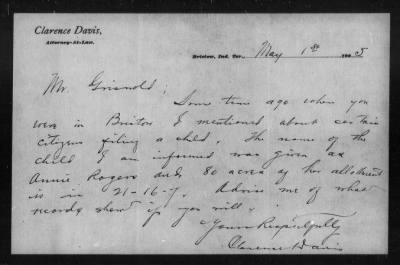 Clarence Davis,
Attorney-At-Law.
Bristow, Ind. Ter., May 1st 1905
Mr. Griswold;
Some time ago when you
were in Bristow I mentioned about certain
citizens filing a child. The name of the
child I am informed was given as
Annie Rogers and 80 acres of her allotment
is in 21-16-7. Advise me of what
records show if you will.
Yours Respectfully
Clarence Davis